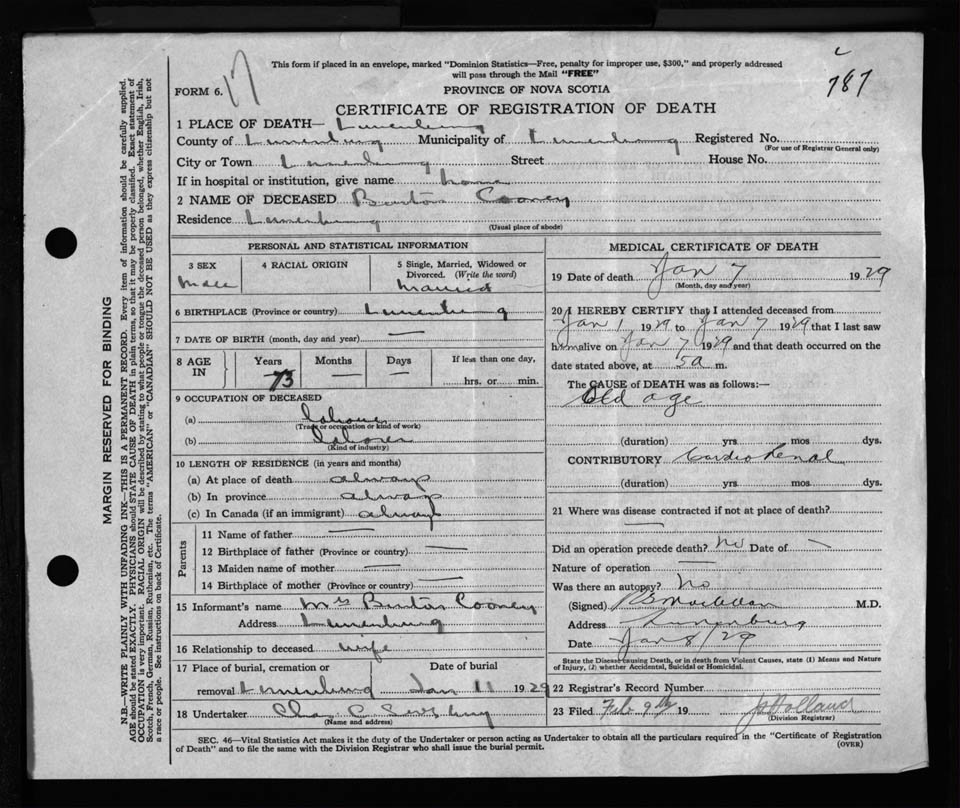 This form if placed in an envelope, marked "Dominion Statistics—Free, penalty for improper use, $300," and properly addressed
will pass through the Mail "FREE"
787
FORM 6.
17
PROVINCE OF NOVA SCOTIA
CERTIFICATE OF REGISTRATION OF DEATH
1 PLACE OF DEATH— Lunenburg
County of Lunenburg Municipality of Lunenburg Registered No.
(For use of Registrar General only)
City or Town Lunenburg Street House No.
If in hospital or institution, give name home
2 NAME OF DECEASED Burton Cooney
Residence Lunenburg
(Usual place of abode)
PERSONAL AND STATISTICAL INFORMATION
3 SEX 4 RACIAL ORIGIN 5 Single, Married, Widowed or
Divorced. (Write the word)
Male Married
6 BIRTHPLACE (Province or country) Lunenburg
7 DATE OF BIRTH (month, day and year) —
8 AGE IN Years Months Days If less than one day,
73 — — hrs. or min.
9 OCCUPATION OF DECEASED
(a) laborer
(Trade or occupation or kind of work)
(b) laborer
(Kind of industry)
10 LENGTH OF RESIDENCE (in years and months)
(a) At place of death always
(b) In province always
(c) In Canada (if an immigrant) always
Parents
11 Name of father —
12 Birthplace of father (Province or country) —
13 Maiden name of mother —
14 Birthplace of mother (Province or country) —
15 Informant's name Mrs Burton Cooney
Address Lunenburg
16 Relationship to deceased wife
17 Place of burial, cremation or Date of burial
removal Lunenburg Jan 11 1929
18 Undertaker Chas C
(Name and address)
MEDICAL CERTIFICATE OF DEATH
19 Date of death Jan 7 1929
(Month, day and year)
20 I HEREBY CERTIFY that I attended deceased from
Jan 1 1929 to Jan 7 1929 that I last saw
him alive on Jan 7 1929 and that death occurred on the
date stated above, at 5 a m.
The CAUSE of DEATH was as follows:—
Old age
(duration) yrs. mos dys.
CONTRIBUTORY Cardio Renal
(duration) yrs. mos. dys.
21 Where was disease contracted if not at place of death?
—
Did an operation precede death? No Date of —
Nature of operation —
Was there an autopsy? No
(Signed) M.D.
Address Lunenburg
Date Jan 8/29
State the Disease causing Death, or in death from Violent Causes, state (1) Means and Nature
of Injury, (2) whether Accidental, Suicidal or Homicidal.
22 Registrar's Record Number
23 Filed Feb 9th 19 Holland
(Division Registrar)
SEC. 46—Vital Statistics Act makes it the duty of the Undertaker or person acting as Undertaker to obtain all the particulars required in the "Certificate of Registration
of Death" and to file the same with the Division Registrar who shall issue the burial permit. (OVER)
MARGIN RESERVED FOR BINDING
N.B.—WRITE PLAINLY WITH UNFADING INK—THIS IS A PERMANENT RECORD. Every item of information should be carefully supplied.
AGE should be stated EXACTLY. PHYSICIANS should STATE CAUSE OF DEATH in plain terms, so that it may be properly classified. Exact statement of
OCCUPATION is very important. RACIAL ORIGIN will be described by stating to what people or tongue the deceased person belonged, whether English, Irish,
Scotch, French, German, Russian, Ruthenian, etc. The terms "AMERICAN" or "CANADIAN" SHOULD NOT BE USED as they express citizenship but not
a race or people. See instructions on back of Certificate.